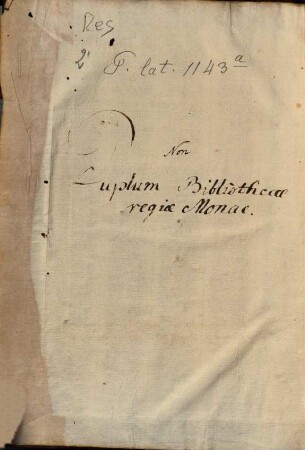 Res
2° P. lat. 1143 a
Non
Duplum Bibliothecae
regiæ Monac.